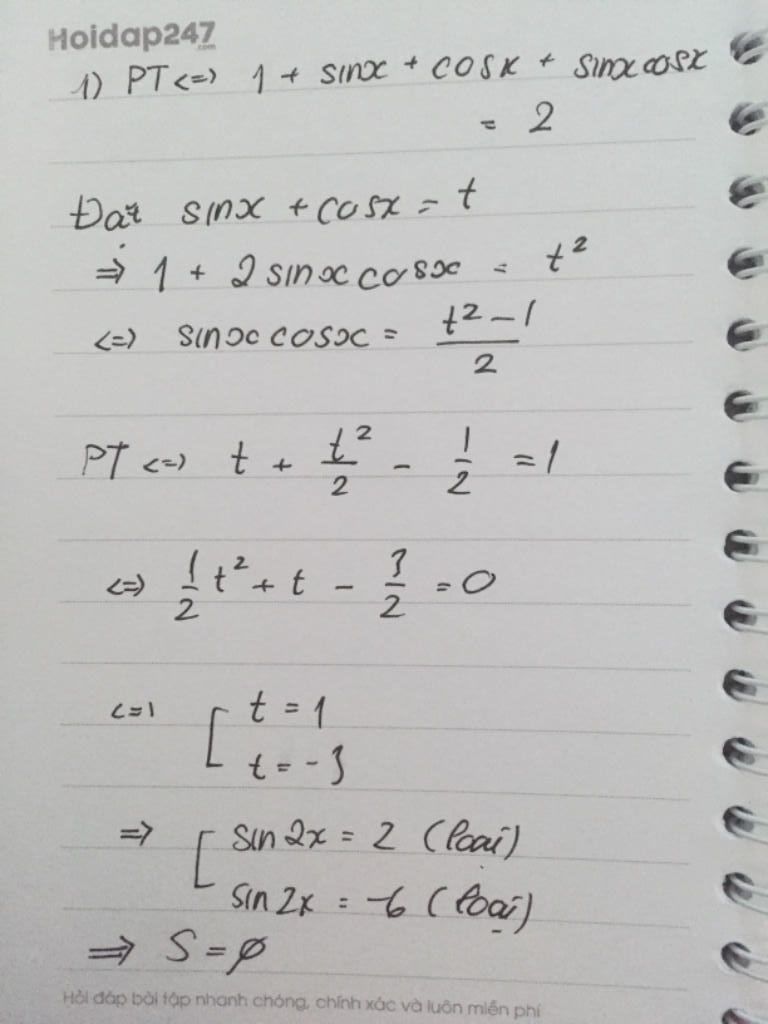 Hoidap247
.com
1) PT <=> 1 + sinx + cosx + sinxcosx
= 2
Đặt sinx + cosx = t
=> 1 + 2sinxcosx = t²
<=> sinxcosx = (t² - 1)/2
PT <=> t + t²/2 - 1/2 = 1
<=> 1/2 t² + t - 3/2 = 0
<=> [ t = 1
t = -3
=> [ sin2x = 2 (loại)
sin2x = -6 (loại)
=> S = ∅
Hỏi đáp bài tập nhanh chóng, chính xác và luôn miễn phí